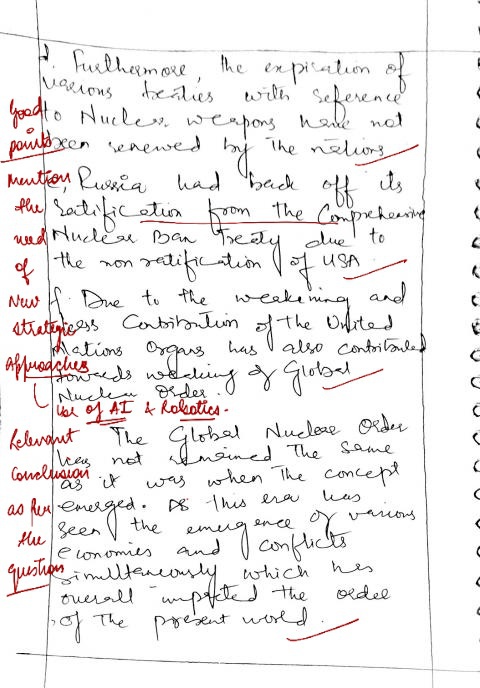 d. Furthermore, the expiration of
various treaties with reference
Good to Nuclear weapons have not
points been renewed by the nations
Mention, Russia had back off its
the ratification from the Comprehensive
need Nuclear Ban Treaty due to
of the non ratification of USA.
New f. Due to the weakening and
strategic less Contribution of the United
Nations Organs has also contributed
approaches towards weaking of Global
Nuclear Order.
use of AI & Robotics.
Relevant The Global Nuclear Order
has not remained the same
Conclusion as it was when the concept
as per emerged. As this era has
the seen the emergence of various
economies and conflicts
question simultaneously which has
overall impacted the order
of the present world.